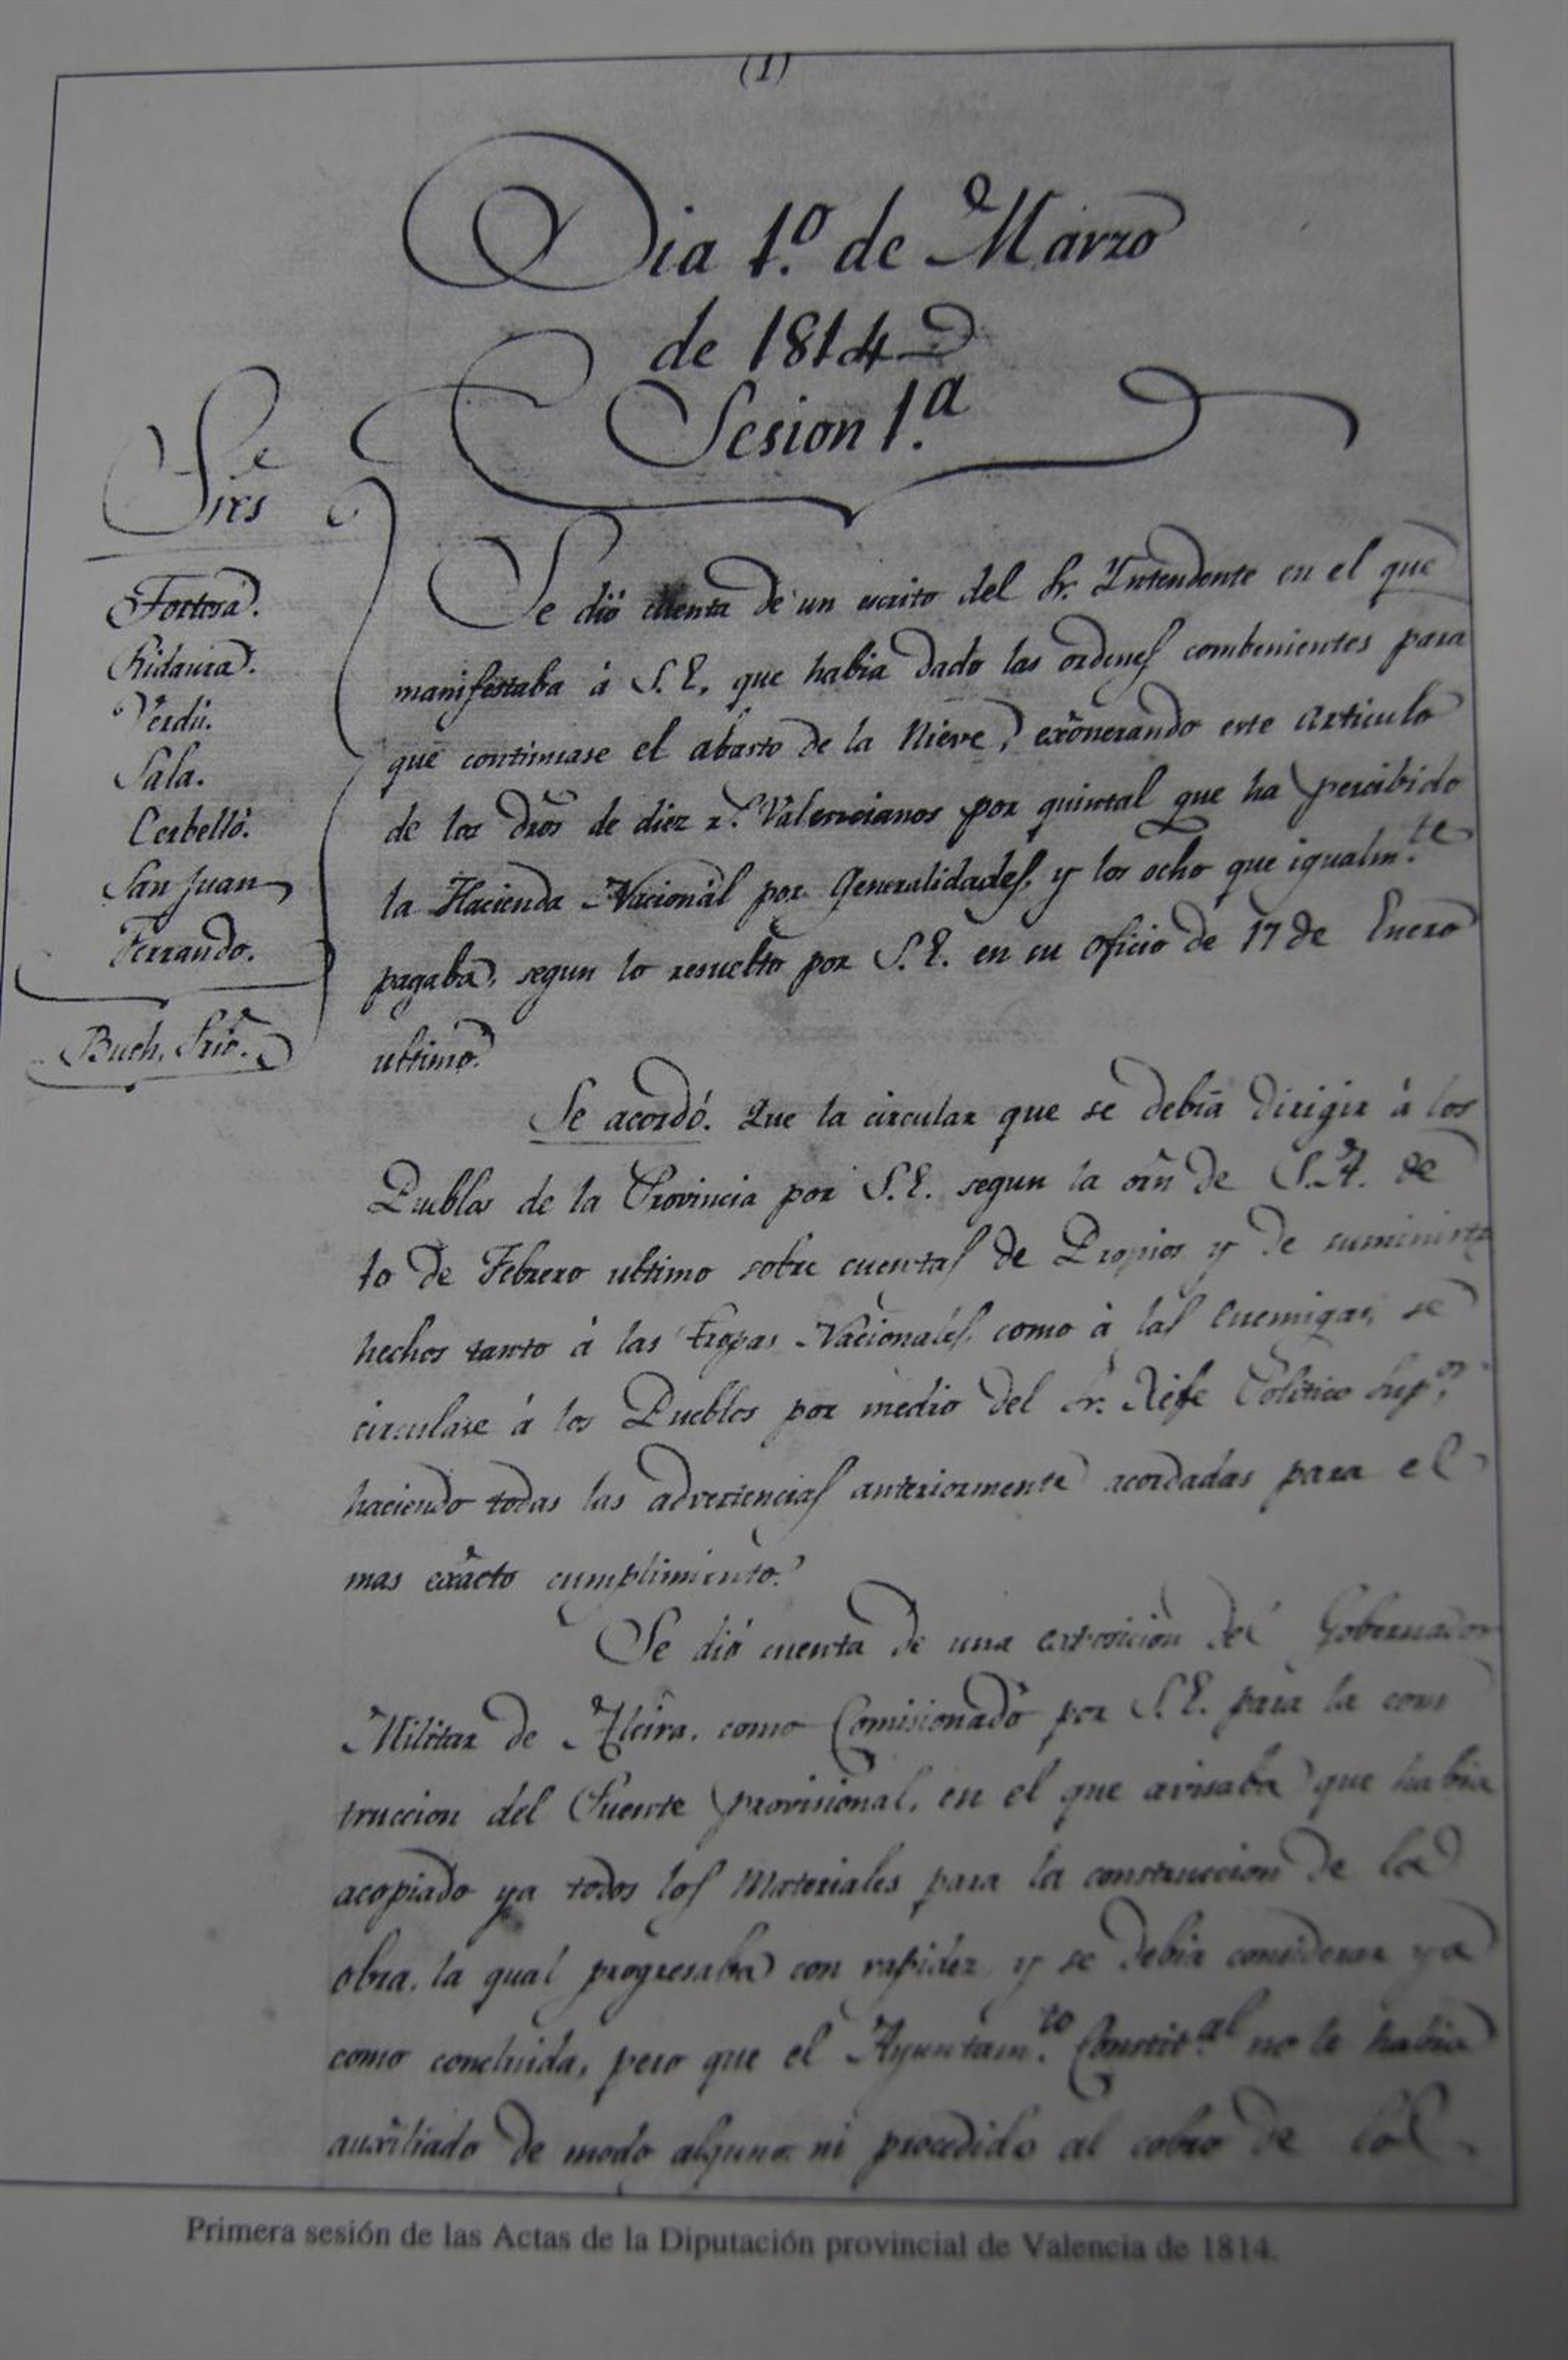 (1)
Dia 1.º de Marzo
de 1814
Sesion 1.ª
Sres
Tortosa.
Ridaura.
Verdú.
Sala.
Cerbelló.
San Juan
Ferrando.
Buch, Srio.
Se dió cuenta de un escrito del Sr. Yntendente en el que
manifestaba á S. E. que habia dado las ordenes combenientes para
que continuase el abasto de la Nieve, exônerando este articulo
de los dros de diez r.s Valencianos por quintal que ha percibido
la Hacienda Nacional por Generalidades, y los ocho que igualm.te
pagaba, segun lo resuelto por S. E. en su oficio de 17 de Enero
ultimo.
Se acordó. Que la circular que se debia dirigir á los
Pueblos de la Provincia por S. E. segun la orn de S. A. de
10 de Febrero ultimo sobre cuentas de Propios y de suministr
hechos tanto á las tropas Nacionales como á las Enemigas, se
circulase á los Pueblos por medio del Sr. Xefe Politico Sup.or
haciendo todas las advertencias anteriormente acordadas para el
mas exâcto cumplimiento.
Se dió cuenta de una exposicion del Gobernador
Militar de Alcira, como Comisionado por S. E. para la cons
truccion del Puente provisional, en el que avisaba que habia
acopiado ya todos los Materiales para la construccion de la
obra, la qual progresaba con rapidez y se debia considerar ya
como concluida, pero que el Ayuntam.to Constit.al no le habia
auxîliado de modo alguno ni procedido al cobro de los
Primera sesión de las Actas de la Diputación provincial de Valencia de 1814.